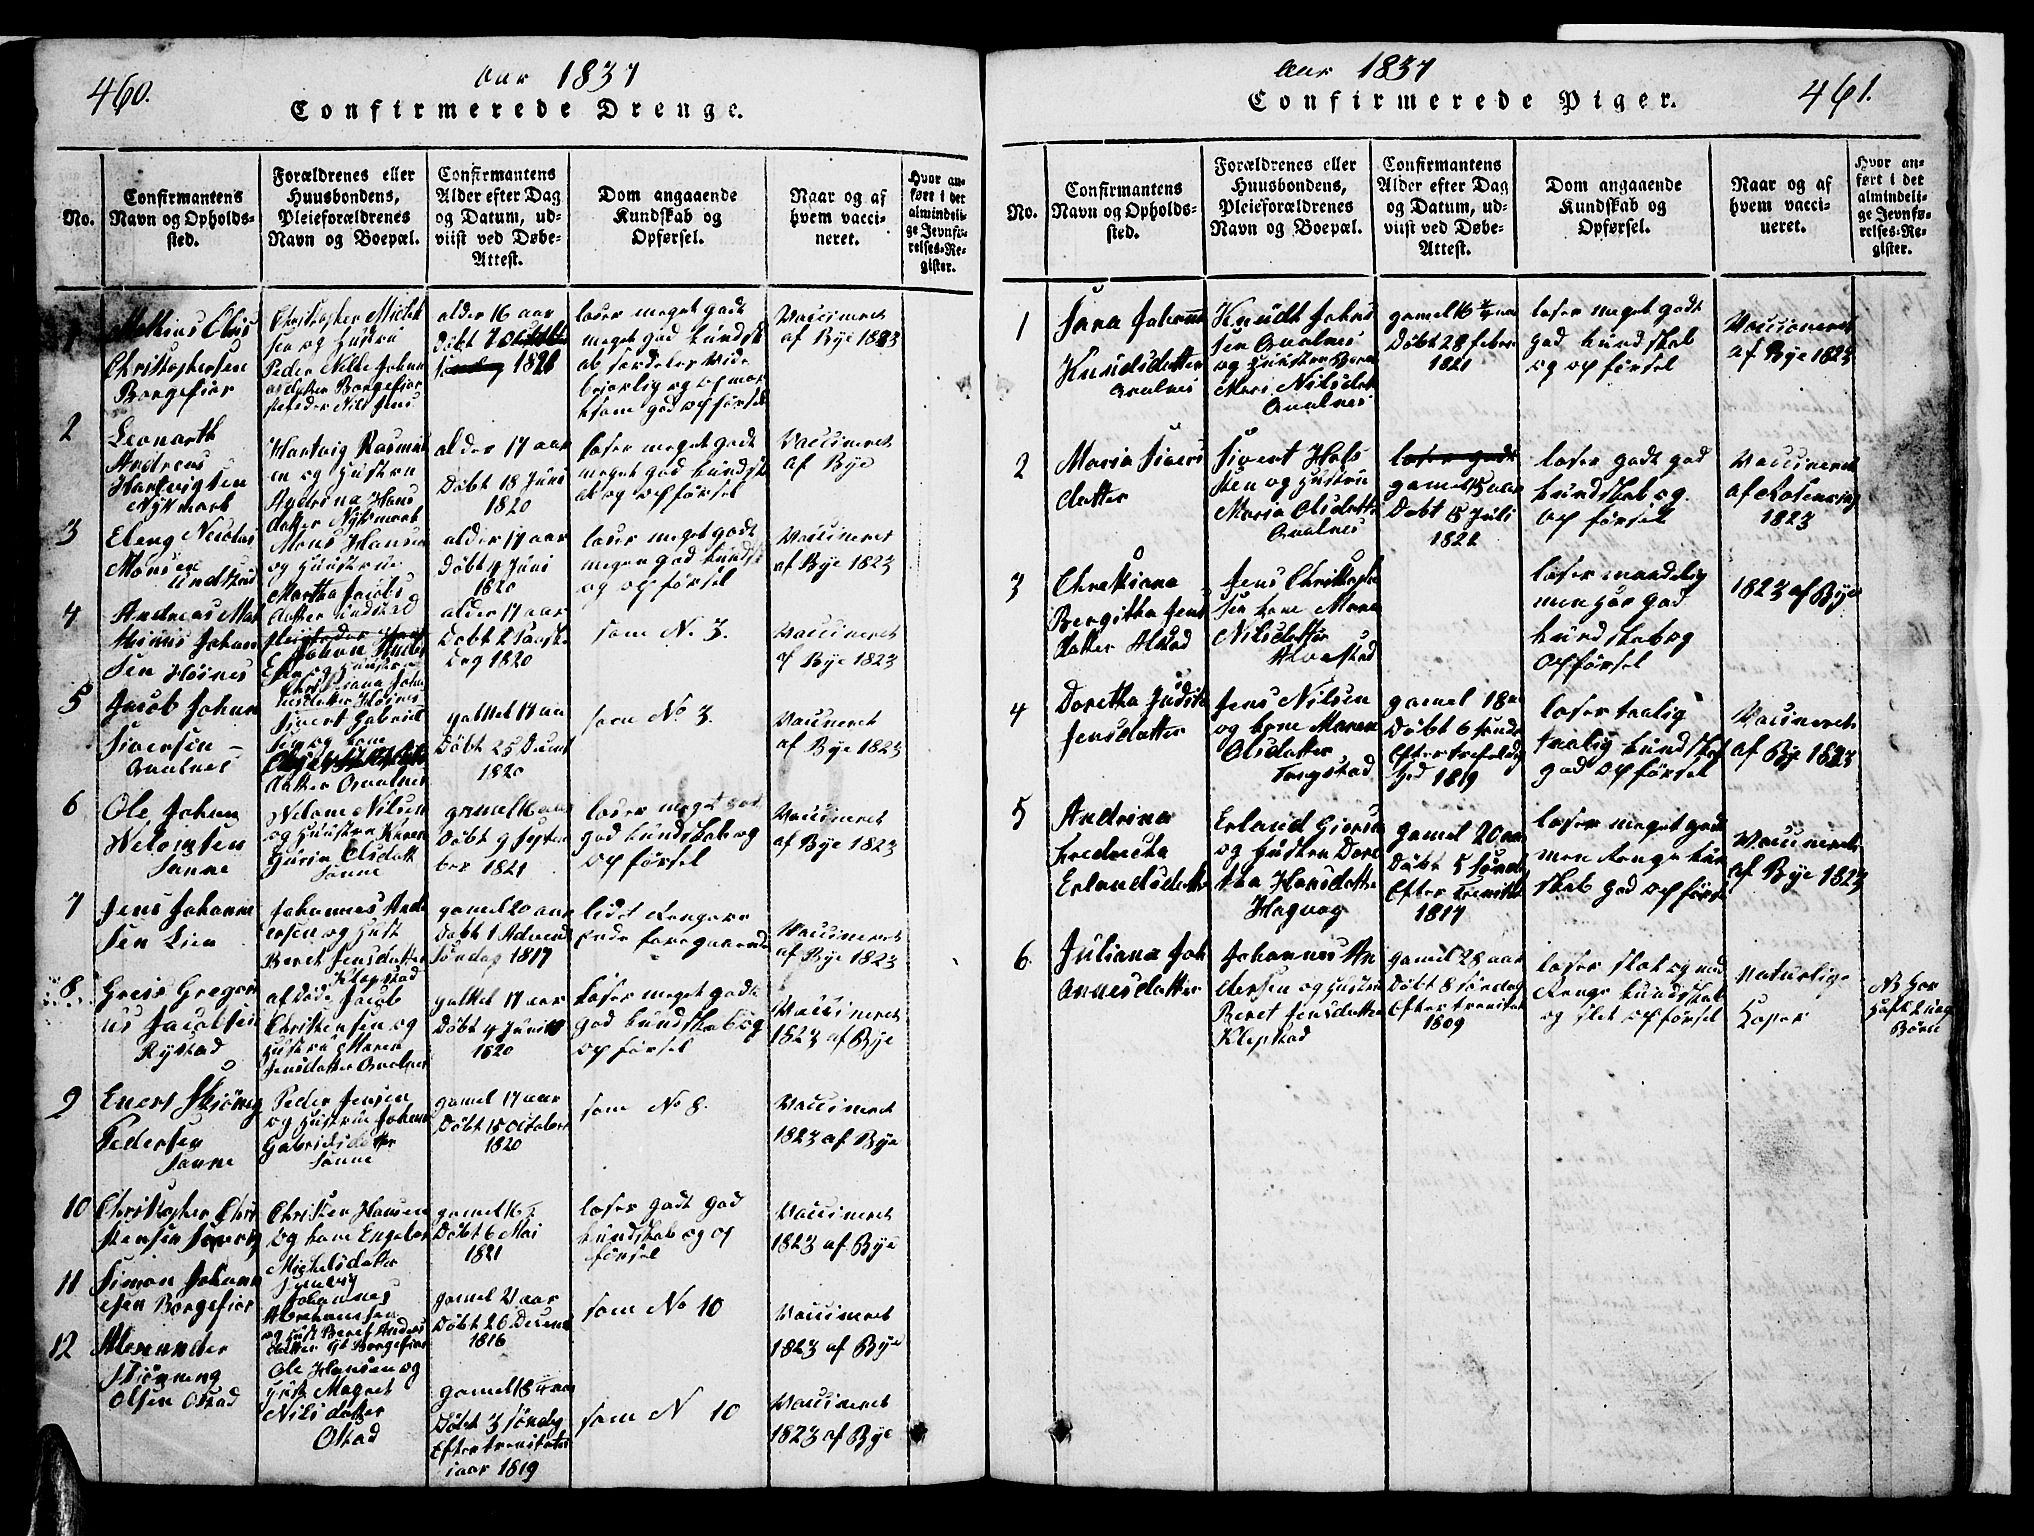 460.
Aar 1837
Confirmerede Drenge.
No.
Confirmantens
Navn og Opholds-
sted.
Forældrenes eller
Huusbondens,
Pleieforældrenes
Navn og Boepæl.
Confirmantens
Alder efter Dag
og Datum, ud-
viist ved Døbe-
Attest.
Dom angaaende
Kundskab og
Opførsel.
Naar og af
hvem vacci-
neret.
Hvor an-
ført i det
almindeli-
ge Jevnfø-
relses-Re-
gister.
1
Christophersen
Borgefior
Christopher Michel
sen og Hustru
alder 16 aar
1821
læser meget godt
meget god kundsk
Vaccineret
af Bye 1823
2
Leonarth
Andreas
Hartvigsen
Nyksmark
Hartvig Rasmus
en og Hustru
Andrina Hans
datter Nyksmark
alder 17 aar
Døbt 18 Juni
1820
læser meget godt
meget god kundsk
ab og opførsel
Vaccineret
af Bye
3
Eleng Nicolai
Monsen
Mons Hansen
og Hustrue
Martha Jacobs
datter
alder 17 aar
Døbt 4 Juni
1820
læser meget godt
megen god kundsk
og opførsel
Vaccineret
af Bye 1823
4
Andreas Mat
hinus Johan
sen Høines
alder 17 aar
Døbt 2 Paaske
dag 1820
som No 3.
Vaccineret
af Bye 1823
5
Jacob Johan
Siversen
Qualnes
Sivert Gabriel
sen og kone
datter Qualnes
gammel 17 aar
Døbt 25 Decemb
1820
som No 3.
Vaccineret
af Bye 1823
6
Ole Johan
Nelomsen
Sanne
Nelome Nilsen
og Huustru Karen
Guria Olsdatt
Sanne
gamel 16 aar
Døbt 9 September
ber 1821
læser meget god
god kundskab og
opførsel
Vaccineret
af Bye 1823
7
Jens Johanne
sen Lien
Johannes Ande
rsen og Hust
Beret Jensdatter
Klepstad
gamel 20 aar
Døbt 1 Advend
Søndag 1817
lidt ringere
Ende foregaaende
Vaccineret
af Bye 1823
8
Greis Gregori
us Jacobsen
Rystad
afdøde Jacob
Christensen og
Hustru Maren
Jensdatter Qualnes
Døbt 4 Juni
1820
Læser meget godt
god kundskab og
opførsel
Vaccineret
1823 af Bye
9
Evert Skjøning
Pedersen
Sanne
Peder Jensen
og Hustrue Johann
Gabrielsdatter
Sanne
gamel 17 aar
Døbt 15 October
1820
som No 8.
Vaccineret
1823 af Bye
10
Christopher Chri
stensen
Christen Hansen
og kone Engebor
Michelsdatter
Døbt 6 Mai
1821
læser godt god
kundskab og op
førsel
Vaccineret
1823 af Bye
11
Simon Johann
esen Borgefior
Johannes
Abrahamsen
og Hust Beret Anders
datter Borgefior
gamel 21 aar
Døbt 26 Decemb
1816
som No 10
Vaccineret
1823 af Bye
12
Alexander
Skiønning
Olsen Olstad
Ole Hansen og
Hust Magret
Nilsdatter
Olstad
Døbt 3 Søndag
Efter trenitates
i aar 1819
som N 10
Vaccineret
1823 af Bye
461.
Aar 1837
Confirmerede Piger.
No.
Confirmantens
Navn og Opholds-
sted.
Forældrenes eller
Huusbondens,
Pleieforældrenes
Navn og Boepæl.
Confirmantens
Alder efter Dag
og Datum, ud-
viist ved Døbe-
Attest.
Dom angaaende
Kundskab og
Opførsel.
Naar og af
hvem vacci-
neret.
Hvor an-
ført i det
almindeli-
ge Jevnfø-
relses-Re-
gister.
1
Knudsdatter
Qualnes
Knudt Johns
sen Qualnes
og Hustru
Nilsdat
Qualnes
Døbt 28 febru
1821
læser meget godt
god kundskab
og opførsel
Vaccineret
af Bye 1823
2
Maria Sivers
datter
Sivert Hals
sten og Hustru
Maria Olsdatter
Qualnes
gamel 15 aar
Døbt 15 Juli
læser godt god
kundskab og
opførsel
Vaccineret
af Rosenving
1823
3
Christiana
Bergitha Jens
datter Alstad
Jens Christophe
sen kone Maren
Nilsdatter
læser maadelig
men har god
kundskab og
opførsel
1823 af Bye
4
Doretha Judith
Jensdatter
Jens Nilsen
og kone Maren
Olsdatter
gamel 18 aa
Døbt 6 Sønda
Efter trefoldig
hed 1819
læser taalig
taalig kundskab
god opførsel
Vaccineret
af Bye 1823
5
Andrina
Fredricka
Erlandsdatter
Erland
og Hustru Dore
thea Hansdatter
Hagvog
gamel 20 aar
Døbt 5 Sønda
Efter Trenitat
1817
læser meget godt
men Ringe kun
skab god opførsel
Vaccineret
af Bye 1823
6
Juliana Joh
annesdatter
Johannes An
dersen og Hustru
Beret Jensdatter
Klepstad
gamel 28 aar
Døbt 8 Søndag
Efter trenitat
1809
læser slet og med
Ringe kundskab
og slet opførsel
Naturlige
Koper
NB Har
haft 2 uægt
Børn